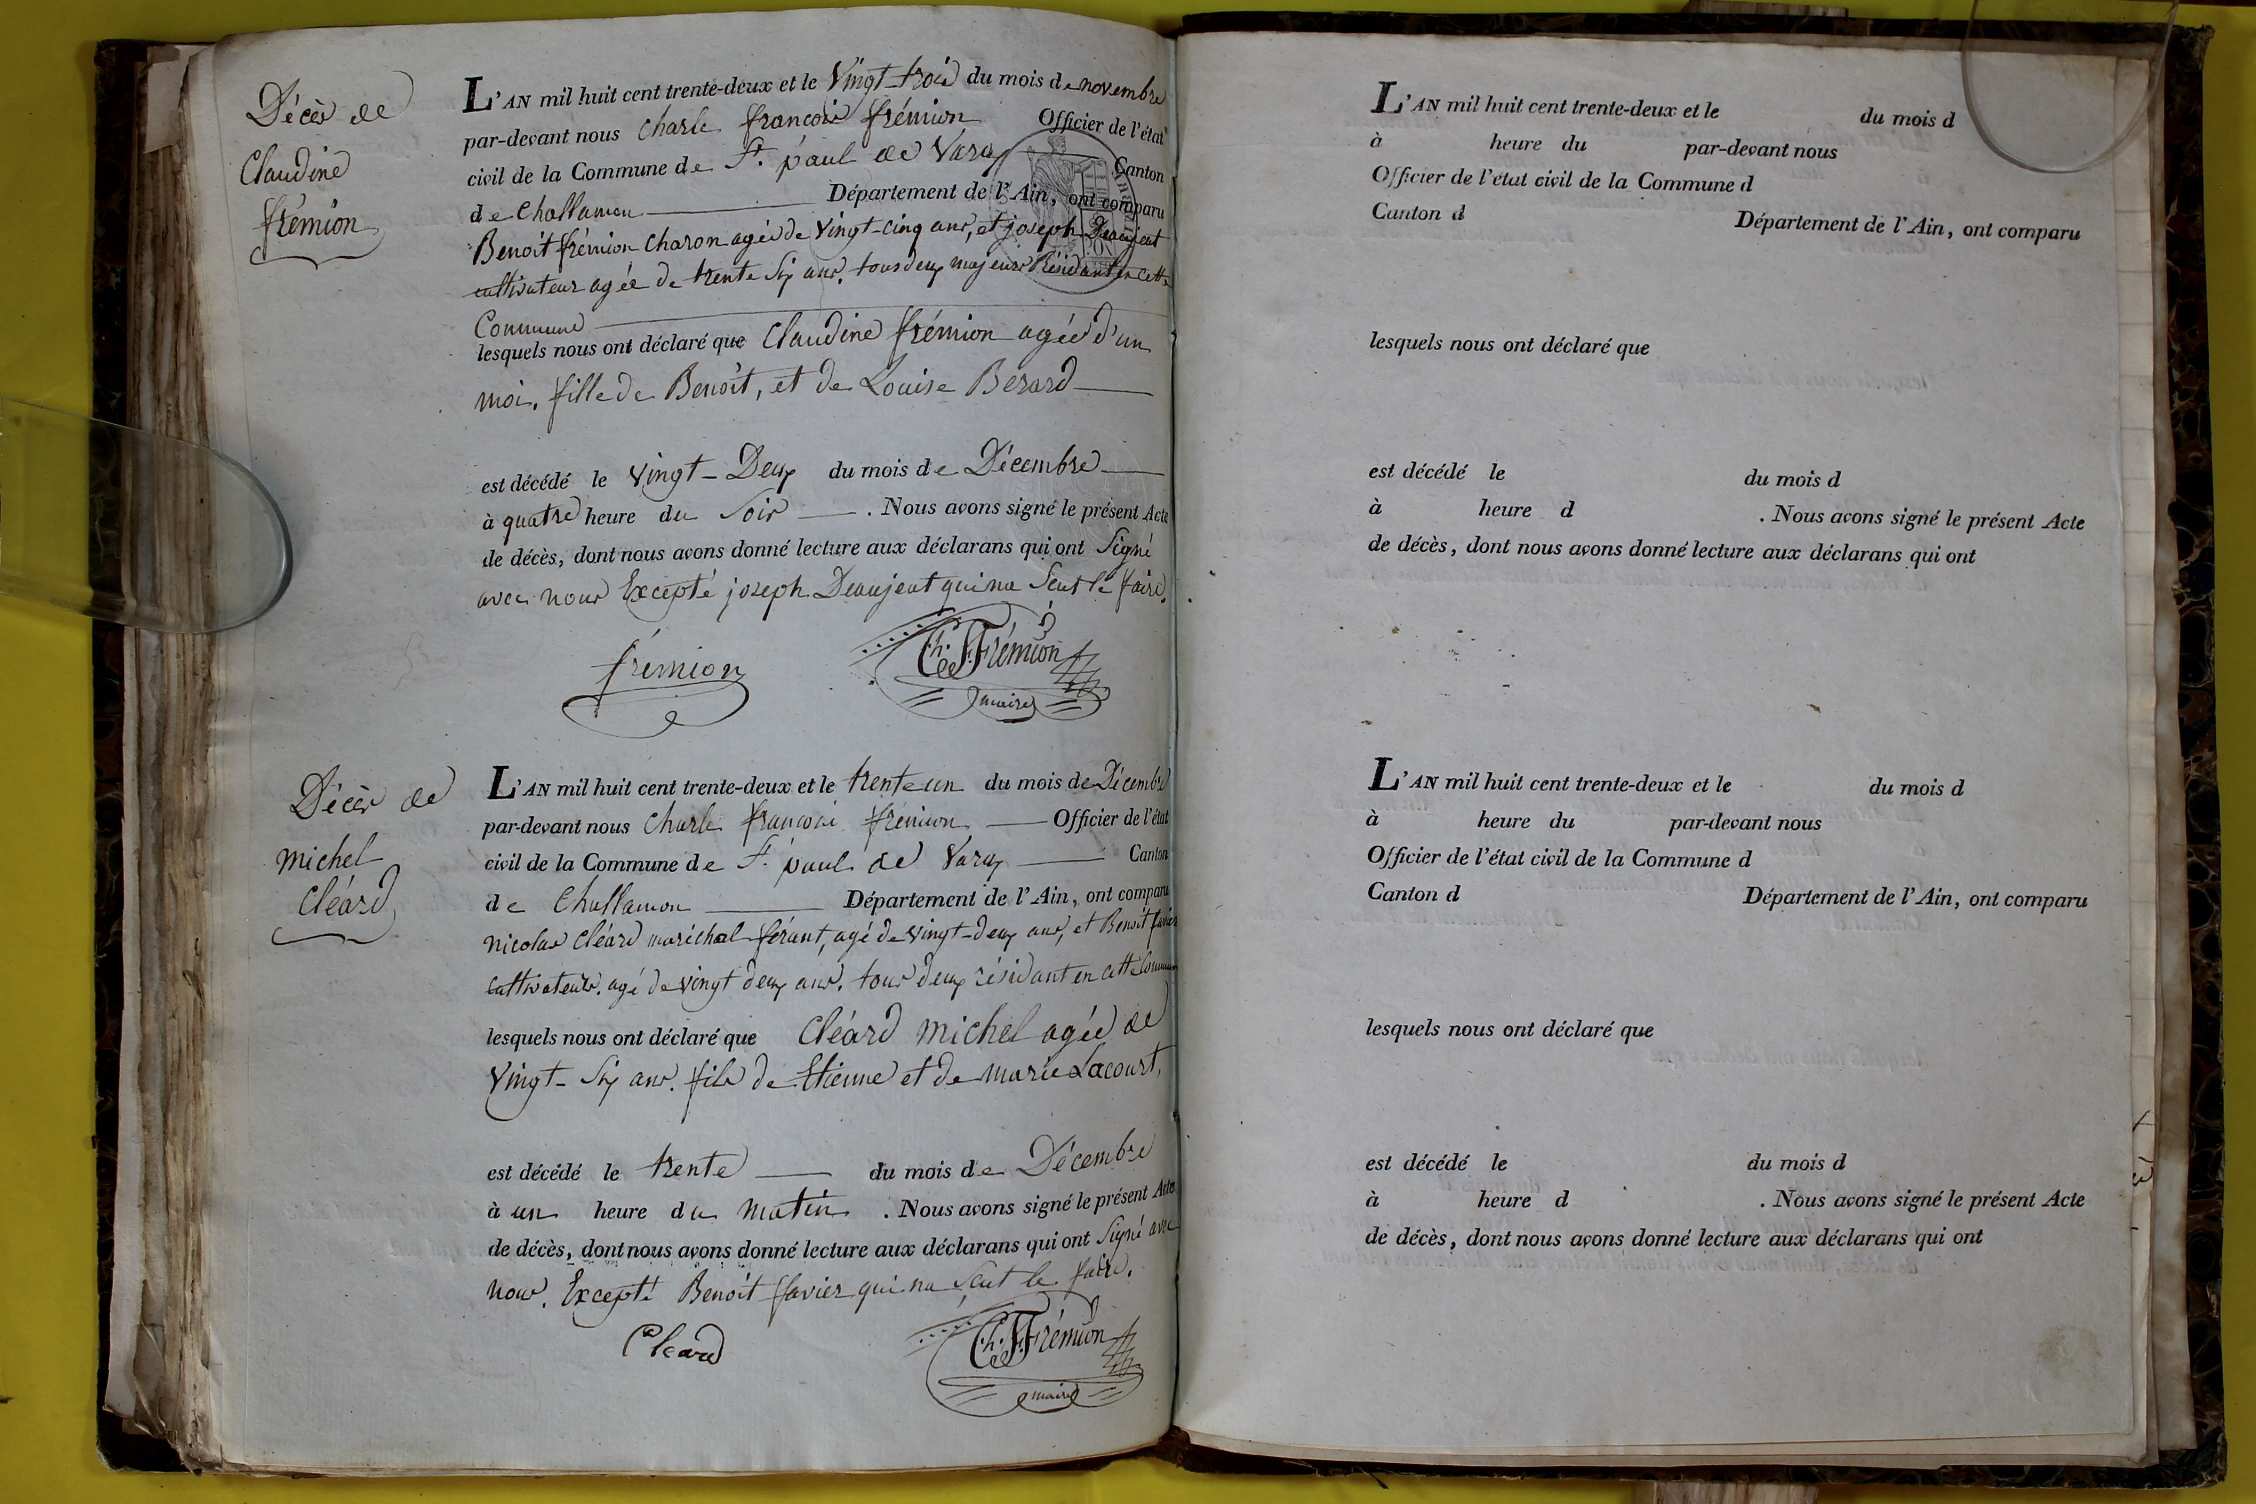 Décès de
Claudine
frémion
L'AN mil huit cent trente-deux et le Vingt-trois du mois de novembre
par-devant nous Charle françois frémion Officier de l'état
civil de la Commune de St. paul de Varax Canton
de Challamon Département de l'Ain, ont comparu
Benoit frémion Charon agée de Vingt-cinq ans, et joseph Deaujeat
cultivateur agée de trente Six ans. tous deux majeurs Résidant en cette
Commune
lesquels nous ont déclaré que Claudine frémion agée d'un
moi. fille de Benoît, et de Louise Berard
est décédé le Vingt-Deux du mois de Décembre
à quatre heure du Soir . Nous avons signé le présent Acte
de décès, dont nous avons donné lecture aux déclarans qui ont Signé
avec nous Excepté joseph Deaujeat qui na Seut le faire.
frémion
Ch. F. Frémion
maire
Décès de
michel
Cléard
L'AN mil huit cent trente-deux et le trente un du mois de Décembre
par-devant nous Charle françois frémion Officier de l'état
civil de la Commune de St. paul de Varax Canton
de Challamon Département de l'Ain, ont comparu
nicolas Cléard maréchal férant, agé de vingt-deux ans, et Benoit favier
Cultivateur. agé de vingt deux ans. tous deux résidant en cette Commune
lesquels nous ont déclaré que Cléard michel agée de
Vingt-Six ans. fils de Etienne et de marie Lacourt.
est décédé le trente du mois de Décembre
à un heure du matin . Nous avons signé le présent Acte
de décès, dont nous avons donné lecture aux déclarans qui ont Signé avec
nous. Excepté Benoit favier qui na Seut le faire.
Cleard
Ch. F. Frémion
maire
L'AN mil huit cent trente-deux et le du mois d
à heure du par-devant nous
Officier de l'état civil de la Commune d
Canton d Département de l'Ain, ont comparu
lesquels nous ont déclaré que
est décédé le du mois d
à heure d . Nous avons signé le présent Acte
de décès, dont nous avons donné lecture aux déclarans qui ont
L'AN mil huit cent trente-deux et le du mois d
à heure du par-devant nous
Officier de l'état civil de la Commune d
Canton d Département de l'Ain, ont comparu
lesquels nous ont déclaré que
est décédé le du mois d
à heure d . Nous avons signé le présent Acte
de décès, dont nous avons donné lecture aux déclarans qui ont